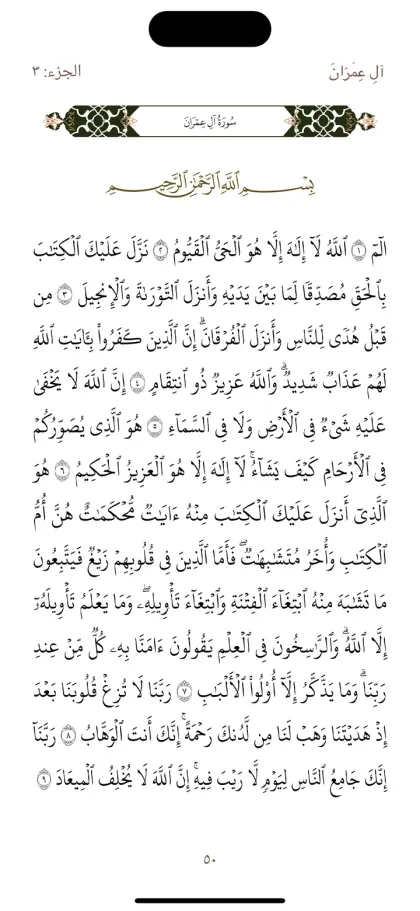 آلِ عِمْرَانَ
الجزء: ٣
سُورَةُ آلِ عِمْرَانَ
بِسْمِ ٱللَّهِ ٱلرَّحْمَٰنِ ٱلرَّحِيمِ
الٓمٓ ١ ٱللَّهُ لَآ إِلَٰهَ إِلَّا هُوَ ٱلْحَىُّ ٱلْقَيُّومُ ٢ نَزَّلَ عَلَيْكَ ٱلْكِتَٰبَ
بِٱلْحَقِّ مُصَدِّقًا لِّمَا بَيْنَ يَدَيْهِ وَأَنزَلَ ٱلتَّوْرَىٰةَ وَٱلْإِنجِيلَ ٣ مِن
قَبْلُ هُدًى لِّلنَّاسِ وَأَنزَلَ ٱلْفُرْقَانَ ۗ إِنَّ ٱلَّذِينَ كَفَرُوا۟ بِـَٔايَٰتِ ٱللَّهِ
لَهُمْ عَذَابٌ شَدِيدٌ ۗ وَٱللَّهُ عَزِيزٌ ذُو ٱنتِقَامٍ ٤ إِنَّ ٱللَّهَ لَا يَخْفَىٰ
عَلَيْهِ شَىْءٌ فِى ٱلْأَرْضِ وَلَا فِى ٱلسَّمَآءِ ٥ هُوَ ٱلَّذِى يُصَوِّرُكُمْ
فِى ٱلْأَرْحَامِ كَيْفَ يَشَآءُ ۚ لَآ إِلَٰهَ إِلَّا هُوَ ٱلْعَزِيزُ ٱلْحَكِيمُ ٦ هُوَ
ٱلَّذِىٓ أَنزَلَ عَلَيْكَ ٱلْكِتَٰبَ مِنْهُ ءَايَٰتٌ مُّحْكَمَٰتٌ هُنَّ أُمُّ
ٱلْكِتَٰبِ وَأُخَرُ مُتَشَٰبِهَٰتٌ ۖ فَأَمَّا ٱلَّذِينَ فِى قُلُوبِهِمْ زَيْغٌ فَيَتَّبِعُونَ
مَا تَشَٰبَهَ مِنْهُ ٱبْتِغَآءَ ٱلْفِتْنَةِ وَٱبْتِغَآءَ تَأْوِيلِهِۦ ۗ وَمَا يَعْلَمُ تَأْوِيلَهُۥٓ
إِلَّا ٱللَّهُ ۗ وَٱلرَّٰسِخُونَ فِى ٱلْعِلْمِ يَقُولُونَ ءَامَنَّا بِهِۦ كُلٌّ مِّنْ عِندِ
رَبِّنَا ۗ وَمَا يَذَّكَّرُ إِلَّآ أُو۟لُوا۟ ٱلْأَلْبَٰبِ ٧ رَبَّنَا لَا تُزِغْ قُلُوبَنَا بَعْدَ
إِذْ هَدَيْتَنَا وَهَبْ لَنَا مِن لَّدُنكَ رَحْمَةً ۚ إِنَّكَ أَنتَ ٱلْوَهَّابُ ٨ رَبَّنَآ
إِنَّكَ جَامِعُ ٱلنَّاسِ لِيَوْمٍ لَّا رَيْبَ فِيهِ ۚ إِنَّ ٱللَّهَ لَا يُخْلِفُ ٱلْمِيعَادَ ٩
٥٠